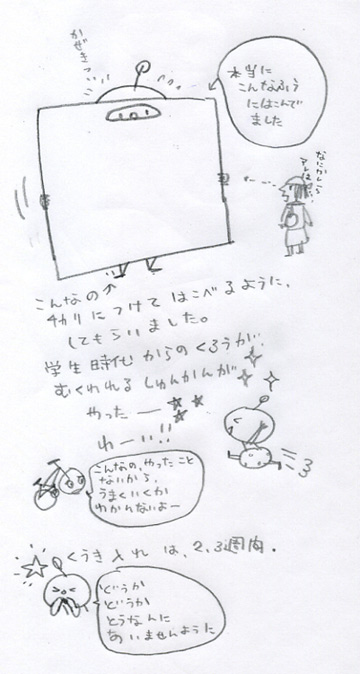 かぜきっ
本当に
こんなふう
にはこんで
ました
なにかしら
アレは
こんなの
ﾁｶﾘにつけてはこべるように、
してもらいました。
学生時代からのくろうが、
むくわれるしゅんかんが
やったー
わーい!!
こんなの、やったこと
ないから、
うまくいくか
わかんないよー
くうき入れは、2、3週間.
どうか
どうか
とうなんに
あいませんように